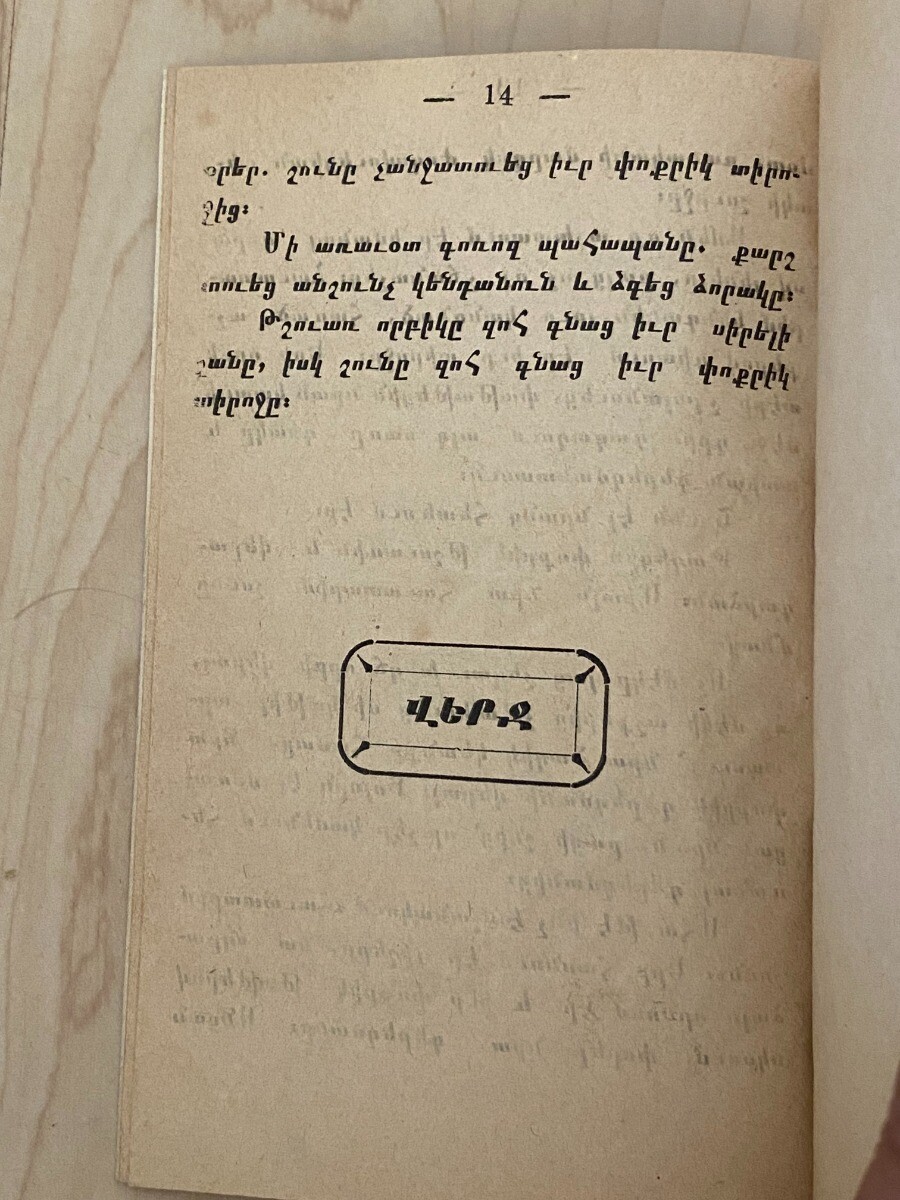 — 14 —
օրեր. շունը չանջատուեց իւր փոքրիկ տիրո-
ջից։
Մի առաւօտ գոռոզ պահապանը. քարշ
տուեց անշունչ կենդանուն և ձգեց ձորակը։
Թշուառ որբիկը զոհ գնաց իւր սիրելի
շանը, իսկ շունը զոհ գնաց իւր փոքրիկ
տիրոջը։
ՎԵՐՋ